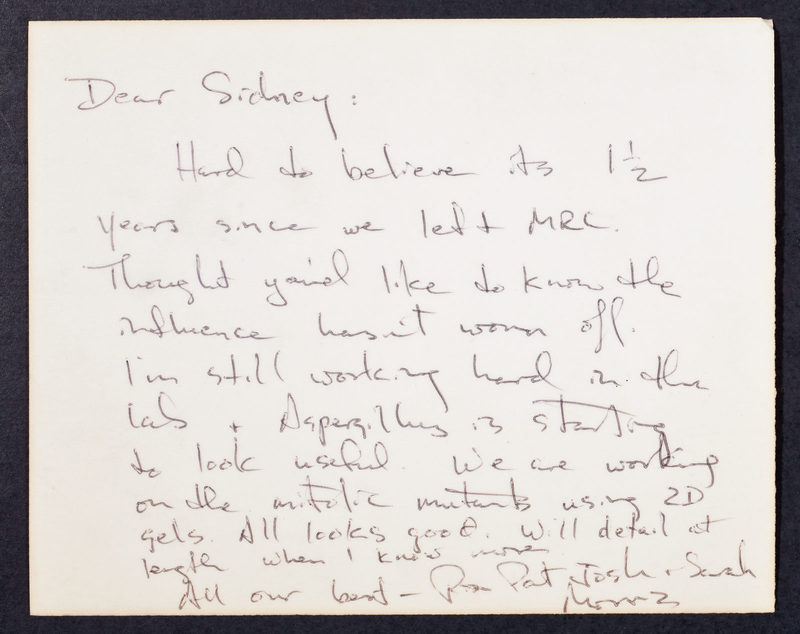 Dear Sidney:
Hard to believe its 1½
years since we left MRC.
Thought you'd like to know the
influence hasn't worn off.
I'm still working hard in the
lab + Aspergillus is starting
to look useful. We are working
on the mitotic mutants using 2D
gels. All looks good. Will detail at
length when I know more
All our best – Pat Josh + Sarah
Morris